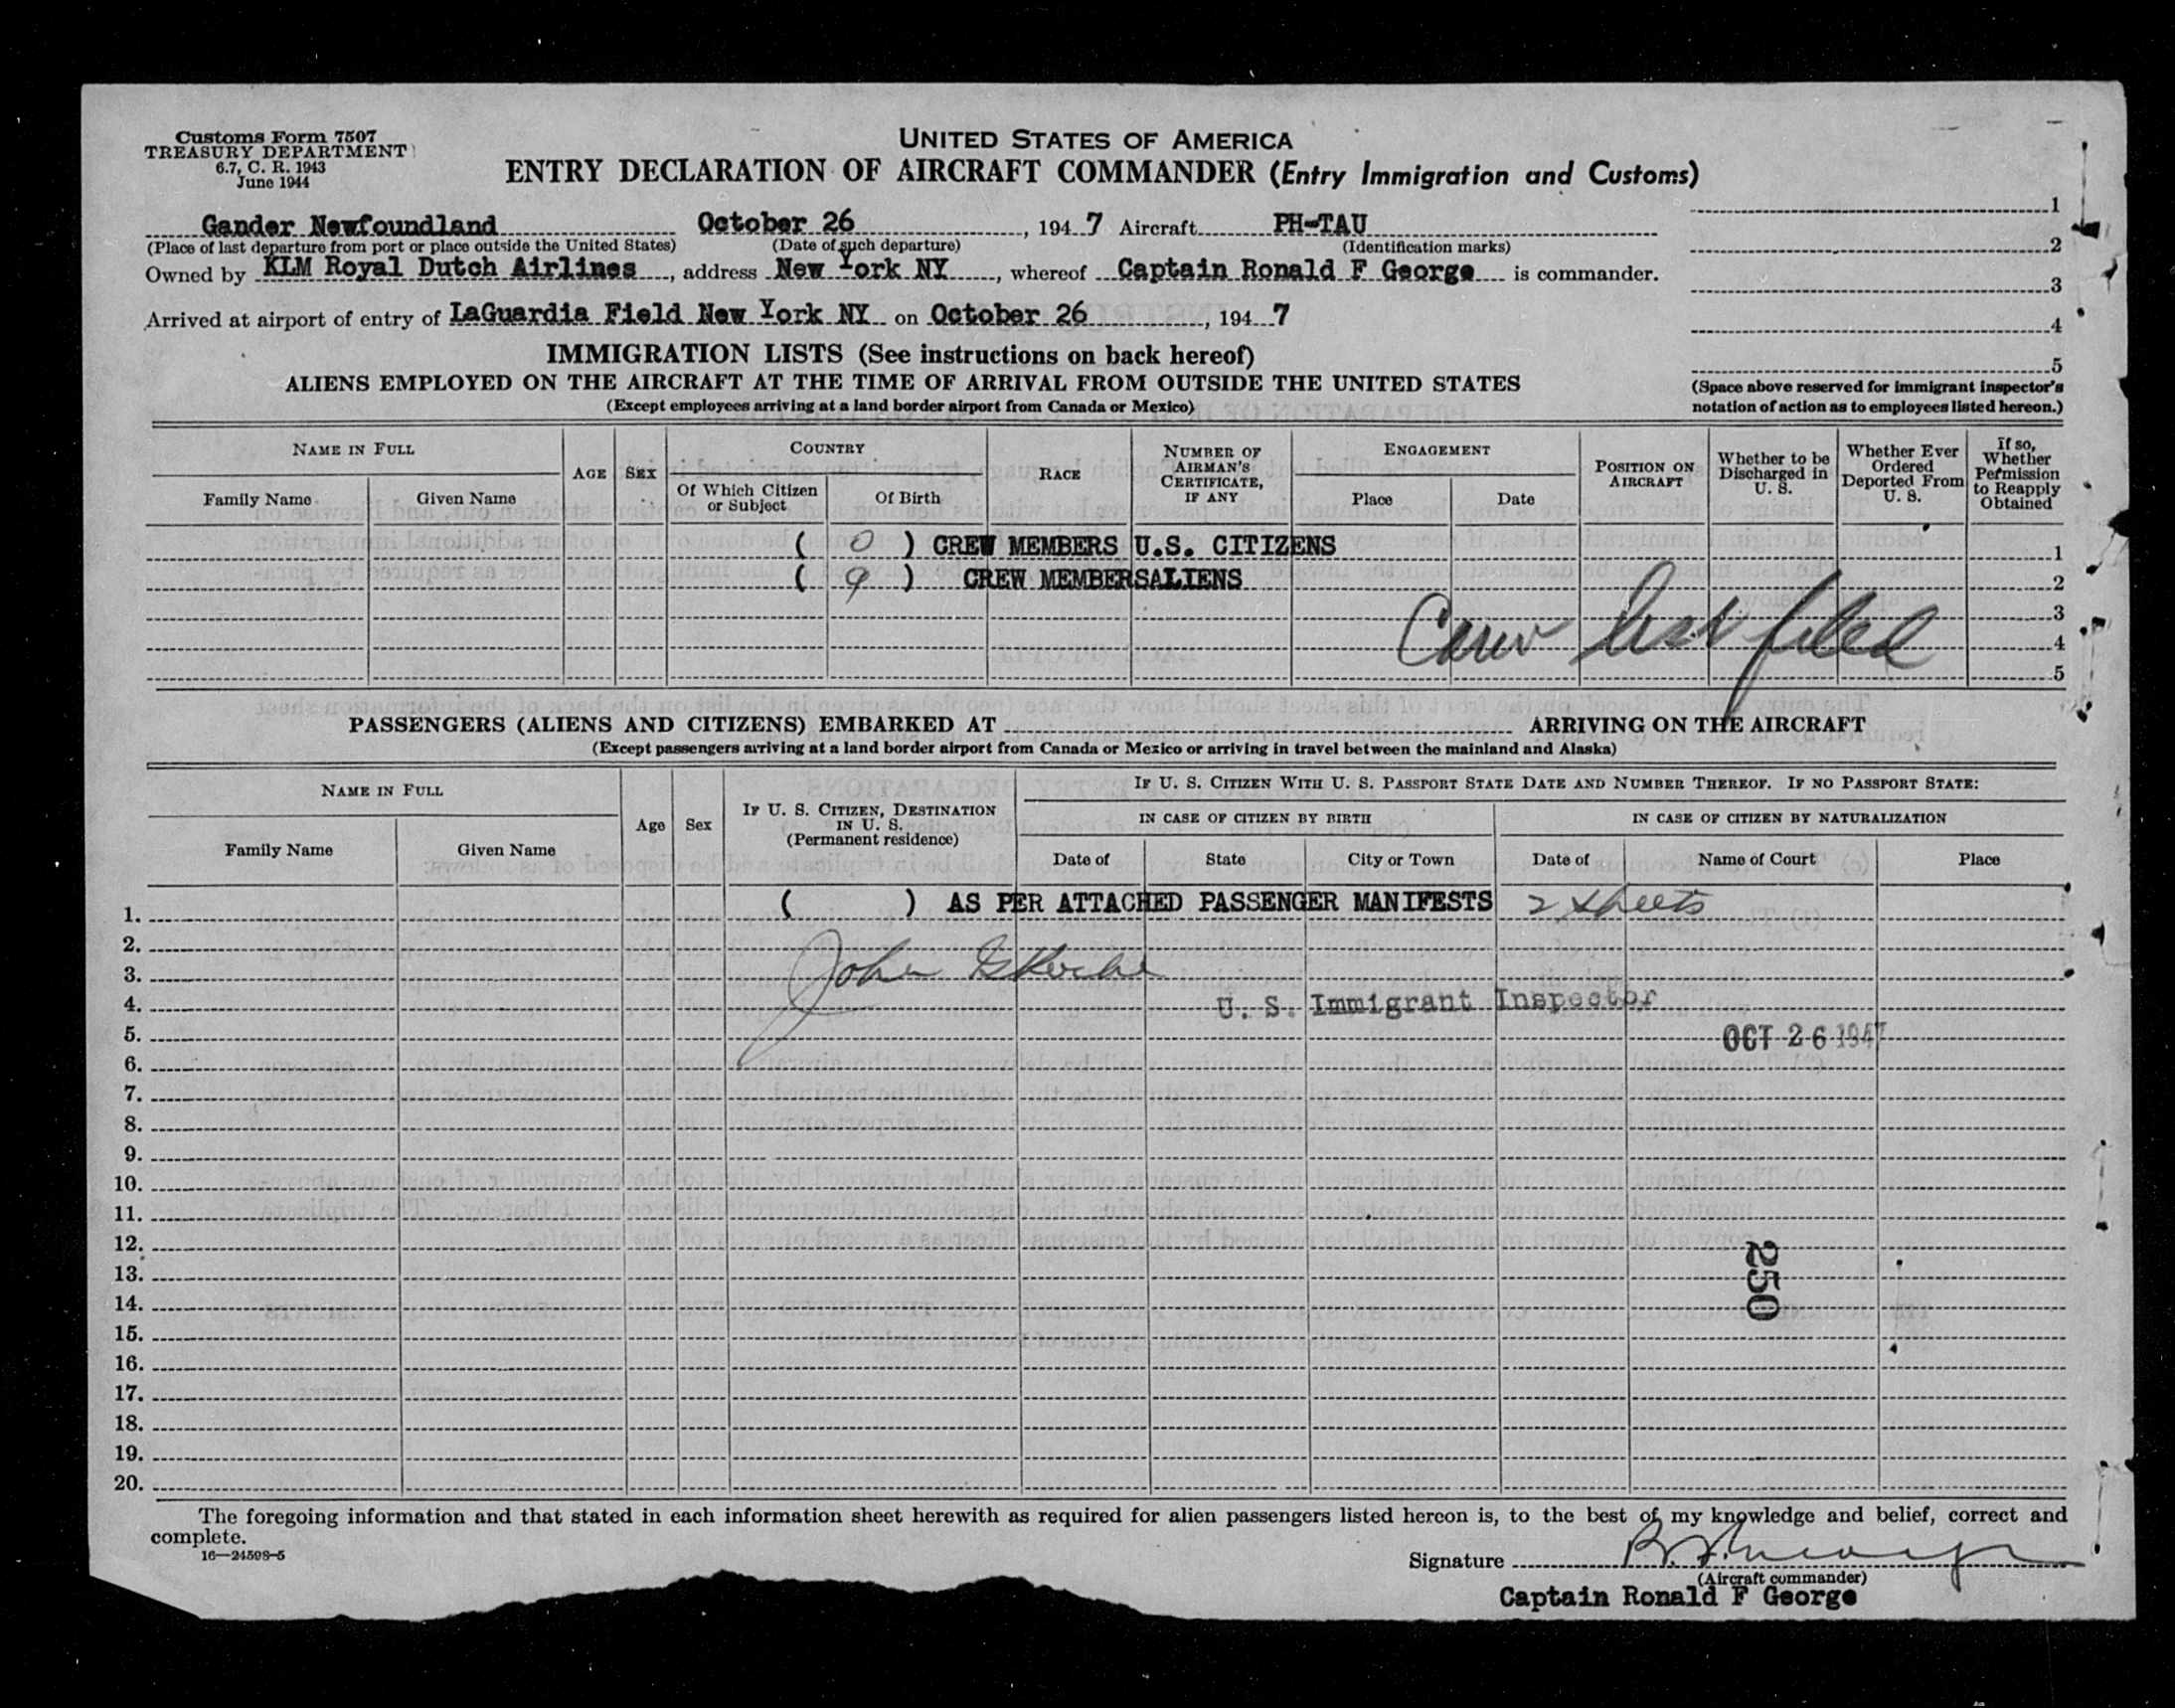 Customs Form 7507
TREASURY DEPARTMENT
6.7, C. R. 1943
June 1944
UNITED STATES OF AMERICA
ENTRY DECLARATION OF AIRCRAFT COMMANDER (Entry Immigration and Customs)
Gander Newfoundland October 26, 1947 Aircraft PH-TAU
(Place of last departure from port or place outside the United States) (Date of such departure) (Identification marks)
Owned by KLM Royal Dutch Airlines, address New York NY, whereof Captain Ronald F George is commander.
Arrived at airport of entry of LaGuardia Field New York NY on October 26, 1947
1
2
3
4
5
(Space above reserved for immigrant inspector's
notation of action as to employees listed hereon.)
IMMIGRATION LISTS (See instructions on back hereof)
ALIENS EMPLOYED ON THE AIRCRAFT AT THE TIME OF ARRIVAL FROM OUTSIDE THE UNITED STATES
(Except employees arriving at a land border airport from Canada or Mexico)
NAME IN FULL
Family Name
Given Name
AGE
SEX
COUNTRY
Of Which Citizen
or Subject
Of Birth
RACE
NUMBER OF
AIRMAN'S
CERTIFICATE,
IF ANY
ENGAGEMENT
Place
Date
POSITION ON
AIRCRAFT
Whether to be
Discharged in
U. S.
Whether Ever
Ordered
Deported From
U. S.
If so,
Whether
Permission
to Reapply
Obtained
( 0 ) CREW MEMBERS U.S. CITIZENS 1
( 9 ) CREW MEMBERSALIENS 2
3
Crew list filed 4
5
PASSENGERS (ALIENS AND CITIZENS) EMBARKED AT ARRIVING ON THE AIRCRAFT
(Except passengers arriving at a land border airport from Canada or Mexico or arriving in travel between the mainland and Alaska)
NAME IN FULL
Family Name
Given Name
Age
Sex
IF U. S. CITIZEN, DESTINATION
IN U. S.
(Permanent residence)
IF U. S. CITIZEN WITH U. S. PASSPORT STATE DATE AND NUMBER THEREOF. IF NO PASSPORT STATE:
IN CASE OF CITIZEN BY BIRTH
IN CASE OF CITIZEN BY NATURALIZATION
Date of
State
City or Town
Date of
Name of Court
Place
1. ( ) AS PER ATTACHED PASSENGER MANIFESTS 2 sheets
2.
3. John
4. U. S. Immigrant Inspector
5. OCT 26 1947
6.
7.
8.
9.
10.
11.
12.
13. 250
14.
15.
16.
17.
18.
19.
20.
The foregoing information and that stated in each information sheet herewith as required for alien passengers listed hereon is, to the best of my knowledge and belief, correct and
complete.
16—24598-5
Signature
(Aircraft commander)
Captain Ronald F George